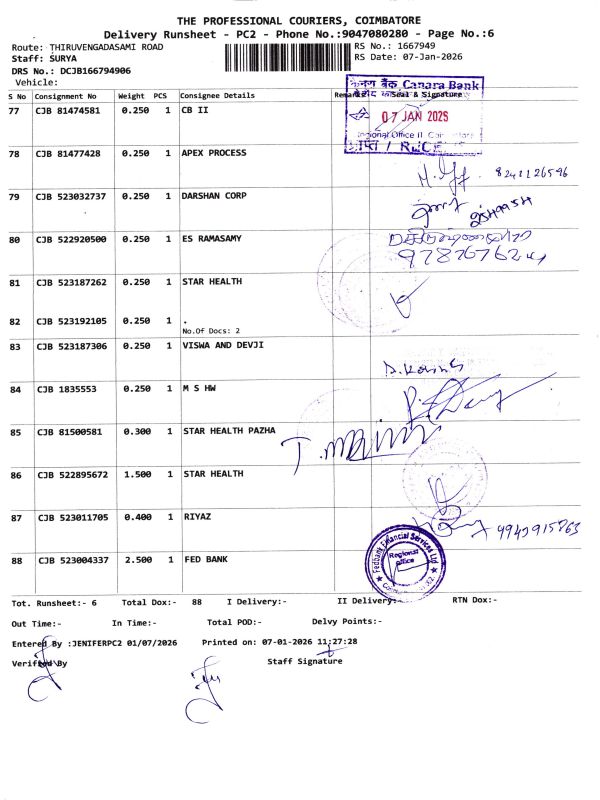 THE PROFESSIONAL COURIERS, COIMBATORE
Delivery Runsheet - PC2 - Phone No.:9047080280 - Page No.:6
Route: THIRUVENGADASAMI ROAD
RS No.: 1667949
Staff: SURYA
RS Date: 07-Jan-2026
DRS No.: DCJB166794906
Vehicle:
केनरा बैंक Canara Bank
S No Consignment No Weight PCS Consignee Details Remarks Seal & Signature
77 CJB 81474581 0.250 1 CB II
07 JAN 2026
Regional Office II
78 CJB 81477428 0.250 1 APEX PROCESS
79 CJB 523032737 0.250 1 DARSHAN CORP
80 CJB 522920500 0.250 1 ES RAMASAMY
81 CJB 523187262 0.250 1 STAR HEALTH
82 CJB 523192105 0.250 1 .
No.Of Docs: 2
83 CJB 523187306 0.250 1 VISWA AND DEVJI
84 CJB 1835553 0.250 1 M S HW
85 CJB 81500581 0.300 1 STAR HEALTH PAZHA
86 CJB 522895672 1.500 1 STAR HEALTH
87 CJB 523011705 0.400 1 RIYAZ
88 CJB 523004337 2.500 1 FED BANK
Fedbank Financial Services Ltd
Regional
Office
Tot. Runsheet:- 6 Total Dox:- 88 I Delivery:- II Delivery:- RTN Dox:-
Out Time:- In Time:- Total POD:- Delvy Points:-
Entered By :JENIFERPC2 01/07/2026 Printed on: 07-01-2026 11:27:28
Verified By Staff Signature